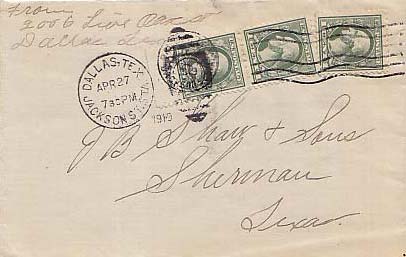 From
2006 Live Oak st
Dallas Tex
DALLAS, TEX.
APR 27
730 PM
JACKSON ST. STA.
1910
J B Shaw & Sons
Sherman
Texas